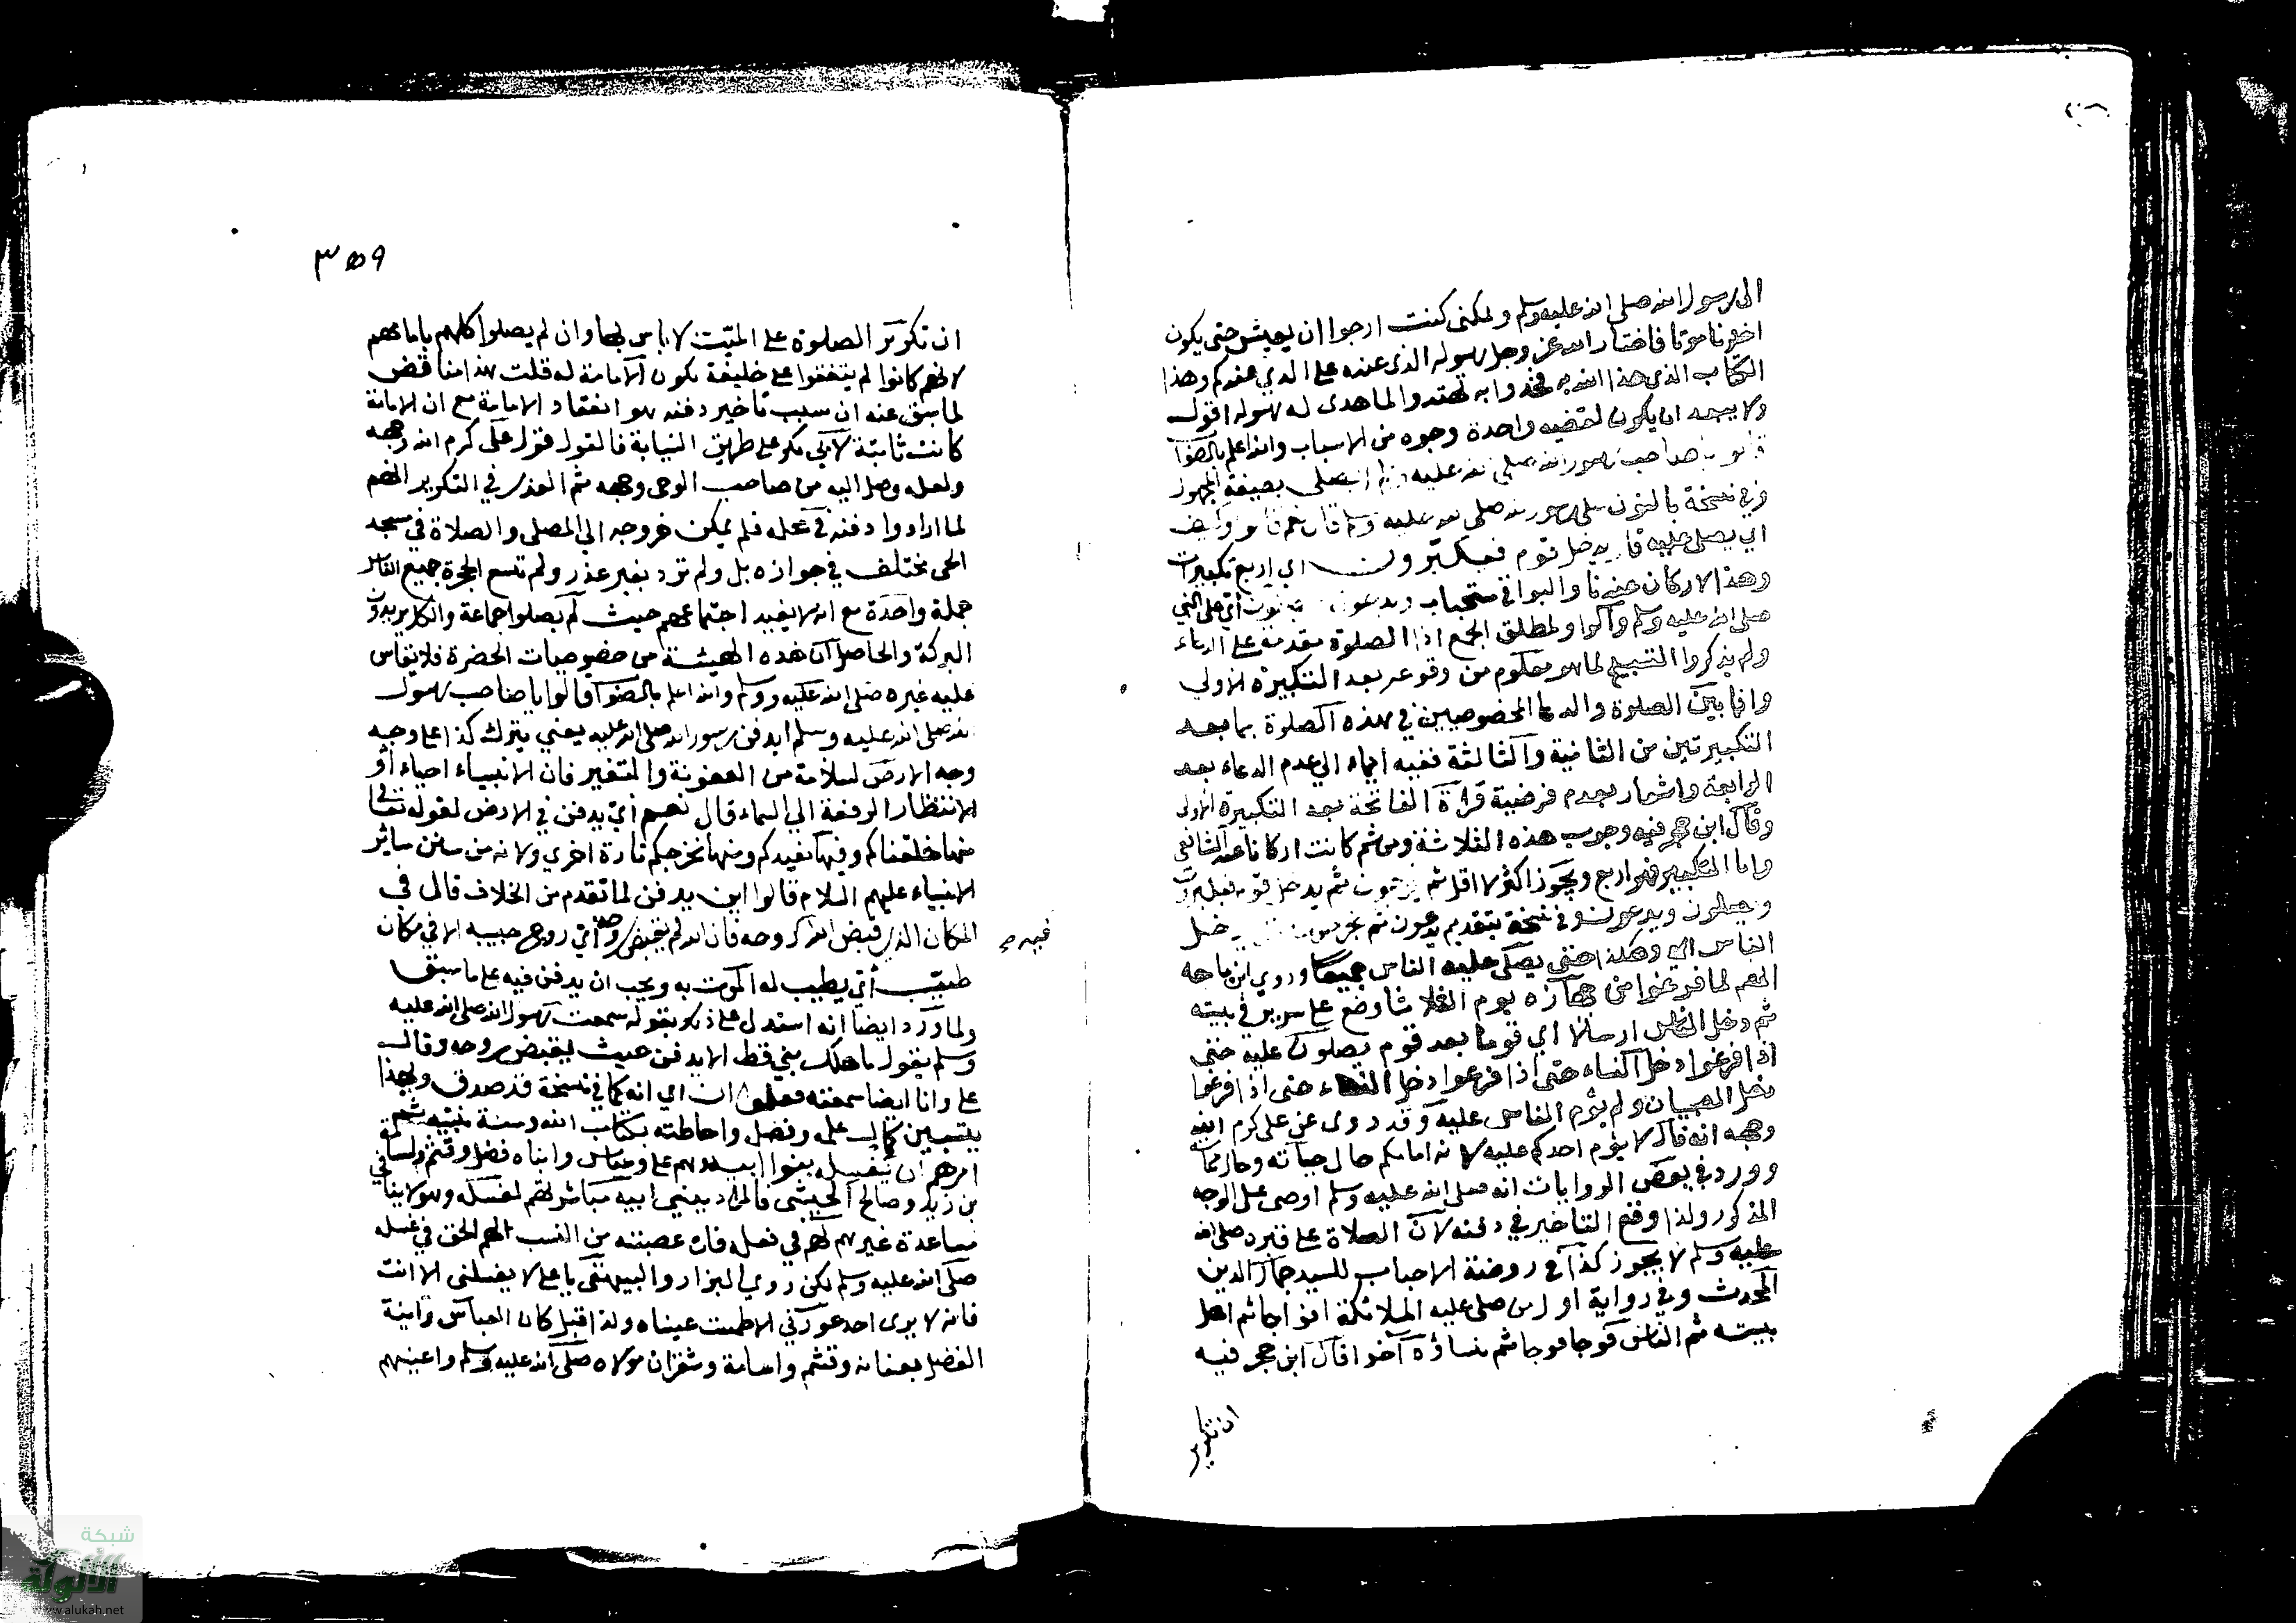 الى رسول الله صلى الله عليه وسلم ولكنى كنت ارجوا ان يعيش حتى يكون
اخرنا موتا فاختار الله عز وجل لرسوله الذى عنده على الذي عندكم وهذا
الكتاب الذى هذا الله به فخذوا به تهتدوا لما هدى له رسوله اقول
ولا يبعد ان يكون لقضيه واحدة وجوه من الاسباب والله اعلم بالصوا
قالو يا صاحب رسول الله صلى الله عليه وسلم ايصلى بصيغة المجهول
وفي نسخة بالنون على رسول الله صلى الله عليه وسلم قال نعم قالو وكيف
اي يصلى عليه قال يدخل قوم فيكبرون اي اربع تكبيرات
وهذا الاركان عندنا والبواقى مستحبات ويدعون ويصلون أي على النبي
صلى الله عليه وسلم والواو لمطلق الجمع اذ الصلوة مقدمة على الدعاء
ولم يذكروا التسبيح لما هو معلوم من وقوعه بعد التكبيرة الاولي
وانما بين الصلوة والدعا المخصوصين في هذه الصلوة بما بعد
التكبيرتين من الثانية والثالثة ففيه ايماء الي عدم الدعاء بعد
الرابعة واشعار بعدم فرضية قراة الفاتحة بعد التكبيرة الاولى
وقال ابن حجر فيه وجوب هذه الثلاثة ومن ثم كانت اركانا عند الشافعي
واما التكبير فهو اربع ويجوز اكثر لا اقل ثم يخرجون ثم يدخل قوم فيكبرون
ويصلون ويدعون وفي نسخة بتقديم يدعون ثم يخرجون حتى يدخل
الناس اي وهكذا حتى يصلى عليه الناس جميعا وروي ابن ماجه
انهم لما فرغوا من جهازه يوم الثلاثا وضع على سريره في بيته
ثم دخل الناس ارسالا اي قوما بعد قوم يصلون عليه حتى
اذا فرغوا دخل النساء حتى اذا فرغوا دخل النساء حتى اذا فرغوا
دخل الصبيان ولم يؤم الناس عليه وقد روى عن على كرم الله
وجهه انه قال لا يؤم احدكم عليه لانه امامكم حال حياته وحال مماته
وورد في بعض الروايات انه صلى الله عليه وسلم اوصى على الوجه
المذكور ولذا وقع التاخير في دفنه لان الصلاة على قبره صلى الله
عليه وسلم لا يجوز كذا في روضة الاحباب للسيد جمال الدين
المحدث وفي رواية اول من صلى عليه الملائكة افواجا ثم اهل
بيته ثم الناس فوجا فوجا ثم نساؤه آخرا قال ابن حجر فيه
ان تكرير
٣٥٩
ان تكرير الصلوة على الميت لا باس بها وان لم يصلوا كلهم بامامهم
لانهم كانوا لم يتفقوا على خليفة يكون الامامة له قلت هذا مناقض
لما سبق عنه ان سبب تاخير دفنه هو انعقاد الامامة مع ان الامامة
كانت ثابتة لابي بكر على طريق النيابة فالقول قول على كرم الله وجهه
ولعله وصل اليه من صاحب الوحى وجهه ثم العذر في التكرير انهم
لما ارادوا دفنه في محله فلم يمكن خروجه الي المصلى والصلاة في مسجد
الحى مختلف في جوازه بل ولم ترد بغير عذر ولم تسع الحجرة جميع الناس
جملة واحدة مع انه لا يفيد اجتماعهم حيث لم يصلوا جماعة والكل يريدون
البركة والحاصل ان هذه الهيئة من خصوصيات الحضرة فلا يقاس
عليه غيره صلى الله عليه وسلم والله اعلم بالصوا قالوا يا صاحب رسول
الله صلى الله عليه وسلم ايدفن رسول الله صلى الله عليه يعني يترك كذا على وجه
وجه الارض لسلامة من العفونة والتغير فان الانبياء احياء أو
لانتظار الرفعة الي السماء قال نعم أي يدفن في الارض لقوله تعالى
منها خلقناكم وفيها نعيدكم ومنها نخرجكم تارة اخري ولانه من سنن سائر
الانبياء عليهم السلام قالوا اين يدفن لما تقدم من الخلاف قال في
المكان الذي قبض الله روحه فان الله لم يقبض روحه أي روح حبيبه الا في مكان
فيه صح
طيب أي يطيب له الموت به ويحب ان يدفن فيه على ما سبق
ولما ورد ايضا انه استدل على ذلك بقوله سمعت رسول الله صلى الله عليه
وسلم يقول ما هلك نبي قط الا يدفن حيث يقبض روحه وقال
على وانا ايضا سمعته فعلموا ان اي انه كما في نسخة قد صدق وبهذا
يتبين كمال علمه وفضله واحاطته بكتاب الله وسنة نبيه ثم
امرهم ان يغسله بنوا ابيه وهم على وعباس وابناه فضل وقثم واسامة
بن زيد وصالح الحبشي فالمراد ببنى ابيه مباشرتهم لغسله وهو لا ينافي
مساعدة غيرهم لهم في فعله فان عصبته من النسب لهم الحق في غسله
صلى الله عليه وسلم لكن روي البزار والبيهقى يا على لا يغسلنى الا انت
فانه لا يرى احد عورتي الا طمست عيناه ولذا قيل كان العباس وابنه
الفضل يعينانه وقثم واسامة وشقران مولاه صلى الله عليه وسلم واعينهم
شبكة
الألوكة
www.alukah.net